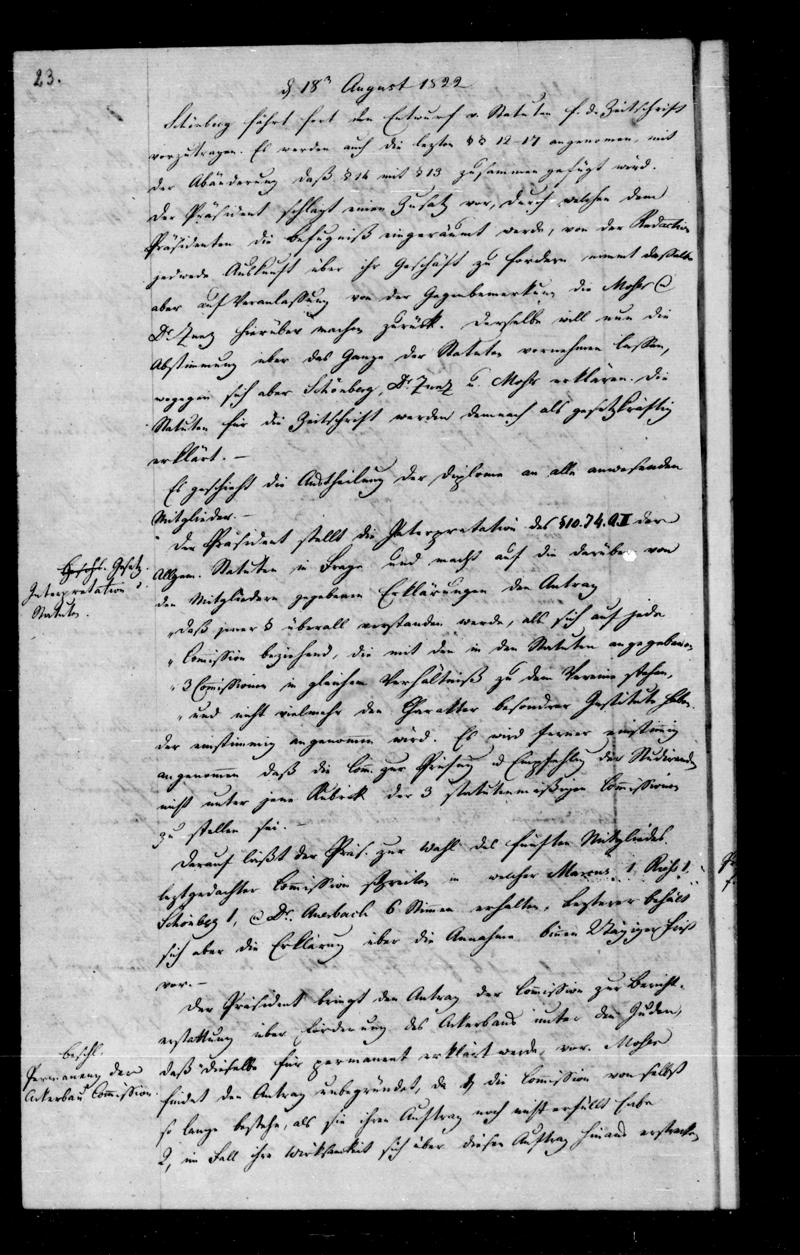 23.
d 18n August 1822
Schönberg fährt fort den Entwurf v. Statuten f. d. Zeitschrift
vorzutragen. Es werden auch die lezten §§ 12-17 angenommen, mit
der Abänderung daß § 14 mit § 13 zusammengefügt wird.
Der Präsident schlägt einen Zusatz vor, durch welchen dem
Präsidenten die Befugniß eingeräumt werde, von der Redaction
jedwede Auskunft über ihr Geschäft zu fordern nimmt dasselbe
aber auf Veranlassung von der Gegenbemerkung die Moser &
Dr Zunz hierüber machen zurück. Derselbe will nun die
Abstimmung über das Ganze der Statuten vornehmen lassen,
wogegen sich aber Schönberg, Dr. Zunz u. Moser erklären. Die
Statuten für die Zeitschrift werden demnach als gesetzkräftig
erklärt. —
Es geschieht die Austheilung der Diplome an alle anwesenden
Mitglieder. —
Der Präsident stellt die Interpretation des § 10. 74. a II der
Allgem. Statuten in Frage und macht auf die darüber von
den Mitgliedern gegebenen Erklärungen den Antrag
„daß jener § überall verstanden werde, als sich auf jede
„Commission beziehend, die mit den in den Statuten angegebenen
„3 Commissionen in gleichem Verhältniß zu dem Vereine stehen,
„und nicht vielmehr den Charakter besondrer Institute habe.
der einstimmig angenommen wird. Es wird ferner einstimmig
angenommen daß die Com. zur Prüfung u Empfehlung der Studirenden
nicht unter jene Rubrik der 3 statutenmäßigen Commissionen
zu stellen sei. —
Gesetz.
Interpretation d.
Statuten.
Darauf läßt der Präs. zur Wahl des fünften Mitgliedes
leztgedachter Commission schreiten in welcher Marcus 1
Schönberg 1, & Dr. Auerbach 6 Stimen erhalten. Lezterer behält
sich aber die Erklärung über die Annahme binnen Frist
vor. —
Der Präsident bringt den Antrag der Commission zur Bericht-
erstattung über Förderung des Ackerbaus unter den Juden,
daß dieselbe für permanent erklärt werde, vor. Moser
findet den Antrag unbegründet, da die Commission von selbst
so lange bestehe, als sie ihren Auftrag noch nicht erfüllt habe
2, im Fall ihre Wirksamkeit sich über diesen Auftrag hinaus erstrecken
beschl.
Permanenz der
Ackerbau Commission.